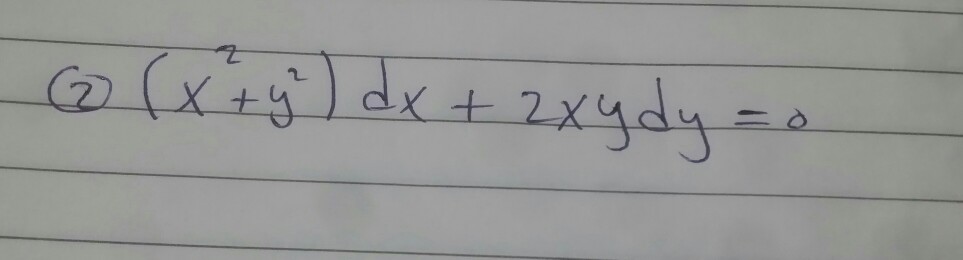 ② (x²+y²) dx + 2xydy = 0